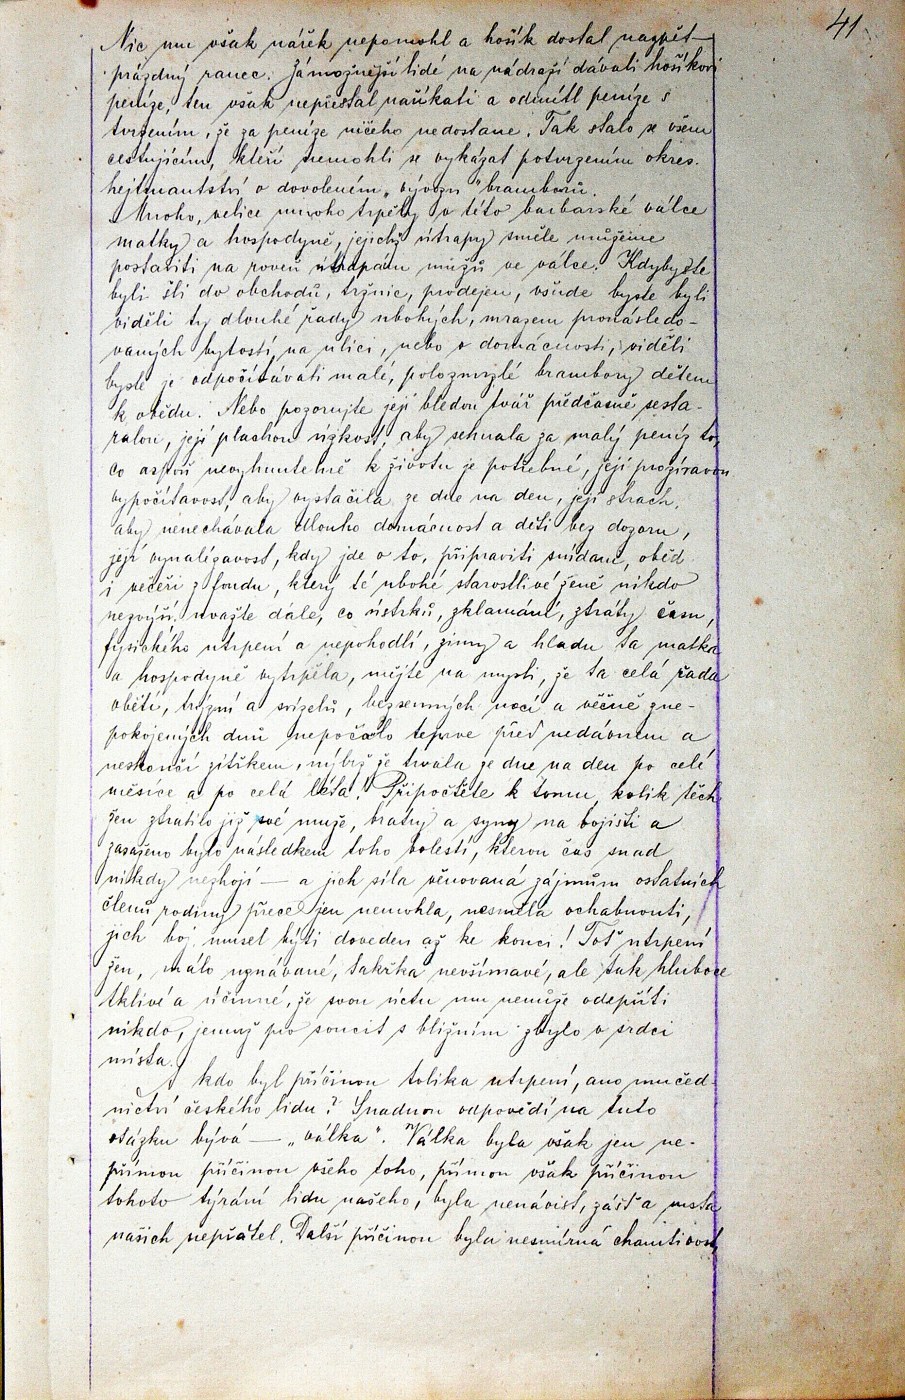 41
Nic mu však nářek nepomohl a hošík dostal nazpět
prázdný ranec. Zámožnější lidé na nádraží dávali hošíkovi
peníze, ten však nepřestal naříkati a odmítl peníze s
tvrzením, že za peníze ničeho nedostane. Tak stalo se všem
cestujícím, kteří nemohli se vykázat potvrzením okres.
hejtmantství o dovoleném „vývozu“ bramborů.
Mnoho, velice mnoho trpěly v této barbarské válce
matky a hospodyně, jejichž útrapy směle můžeme
postaviti na roveň útrapám mužů ve válce. Kdybyste
byli šli do obchodů, tržnic, prodejen, všude byste byli
viděli ty dlouhé řady ubohých, mrazem pronásledo-
vaných bytostí, na ulici, nebo v domácnosti, viděli
byste je odpočítávati malé, polozmrzlé brambory dětem
k obědu. Nebo pozorujte její bledou tvář předčasně sesta-
ralou, její plachou úzkost, aby sehnala za malý peníz to,
co aspoň nevyhnutelně k životu je potřebné, její prozíravou
vypočítavost, aby vystačila ze dne na den, její strach,
aby nenechávala dlouho domácnost a děti bez dozoru,
její vynalézavost, kdy jde o to, připraviti snídani, oběd
i večeři z fondu, který té ubohé starostlivé ženě nikdo
nezvýší. Uvažte dále, co ústrků, zklamání, ztráty času,
fysického utrpení a nepohodlí, zimy a hladu ta matka
a hospodyně vytrpěla, mějte na mysli, že ta celá řada
obětí, trýzní a svízelů, bezsenných nocí a věčně zne-
pokojených dnů nepočalo teprve před nedávnem a
neskončí zítřkem, nýbrž že trvala ze dne na den po celé
měsíce a po celá léta! Připočtěte k tomu, kolik těch
žen ztratilo již své muže, bratry a syny na bojišti a
zasaženo bylo následkem toho bolestí, kterou čas snad
nikdy nezhojí — a jich síla věnovaná zájmům ostatních
členů rodiny přece jen nemohla, nesměla ochabnouti,
jich boj musel býti doveden až ke konci! Toť utrpení
žen, málo uznávané, takřka nevšímavé, ale tak hluboce
tklivé a účinné, že svou úctu mu nemůže odepříti
nikdo, jemuž pro soucit s bližním zbylo v srdci
místa.
A kdo byl příčinou tolika utrpení, ano mučed-
nictví českého lidu? Snadnou odpovědí na tuto
otázku bývá — „válka“. Válka byla však jen ne-
přímou příčinou všeho toho, přímou však příčinou
tohoto týrání lidu našeho, byla nenávist, zášť a msta
našich nepřátel. Další příčinou byla nesmírná chamtivost,